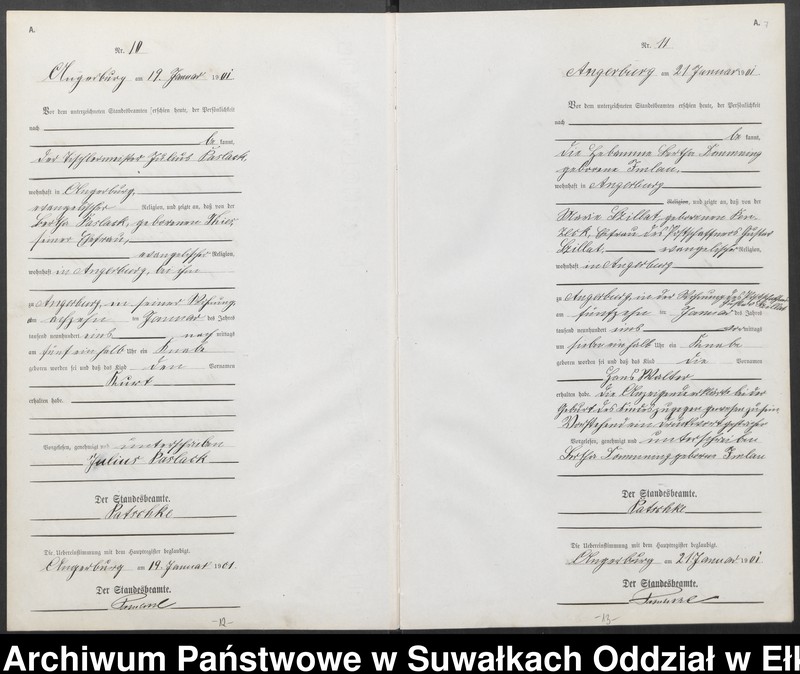 A.
Nr. 10
Angerburg am 19. Januar 1901
Vor dem unterzeichneten Standesbeamten erschien heute, der Persönlichkeit
nach
be kannt,
der Tischlermeister Julius Paslack,
wohnhaft in Angerburg,
evangelischer Religion, und zeigte an, daß von der
Bertha Paslack, geborenen
seiner Ehefrau,
evangelischer Religion,
wohnhaft in Angerburg, bei ihm
zu Angerburg, in seiner Wohnung
am achzehn ten Januar des Jahres
tausend neunhundert eins nach mittags
um fünf ein halb Uhr ein Knabe
geboren worden sei und daß das Kind den Vornamen
Kurt
erhalten habe.
Vorgelesen, genehmigt und unterschrieben
Julius Paslack
Der Standesbeamte.
Patschke
Die Uebereinstimmung mit dem Hauptregister beglaubigt.
Angerburg am 19. Januar 1901
Der Standesbeamte.
-12-
A.
Nr. 11
Angerburg am 21 Januar 1901
Vor dem unterzeichneten Standesbeamten erschien heute, der Persönlichkeit
nach
be kannt,
die Hebamme Bertha Domnning
geborene Imlau,
wohnhaft in Angerburg
Religion, und zeigte an, daß von der
Marie Szillat geborenen
Ehefrau des Postschaffners Gustav
Szillat, evangelischer Religion,
wohnhaft in Angerburg
zu Angerburg in der Wohnung des Postschaffners
Gustav Szillat
am fünfzehn ten Januar des Jahres
tausend neunhundert eins vor mittags
um sieben ein halb Uhr ein Knabe
geboren worden sei und daß das Kind die Vornamen
Hans Walter
erhalten habe. Die Anzeigende erklärte bei der
Geburt des Kindes zugegen gewesen zu sein
Vorstehend ein Druckwort gestrichen
Vorgelesen, genehmigt und unterschrieben
Bertha Domnning geborene Imlau
Der Standesbeamte.
Patschke
Die Uebereinstimmung mit dem Hauptregister beglaubigt.
Angerburg am 21 Januar 1901
Der Standesbeamte.
-13-
Archiwum Państwowe w Suwałkach Oddział w Ełk